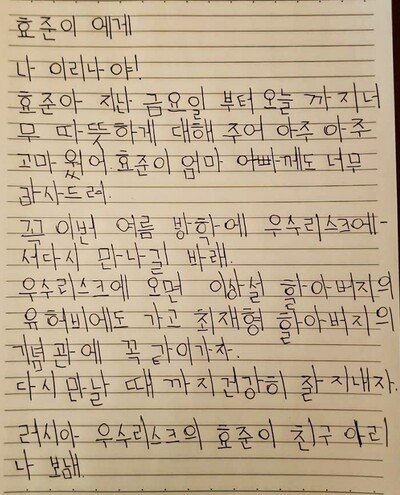 효준이 에게
나 이리나 야!
효준아 지난 금요일 부터 오늘 까지 너
무 따뜻하게 대해 주어 아주 아주
고마 웠어. 효준이 엄마 아빠께도 너무
감사드려.
꼭 이번 여름 방학에 우수리스크에-
서 다시 만나길 바래.
우수리스크에 오면 이상설 할아버지의
유허비에도 가고 최재형 할아버지의
기념관에 꼭 같이가자.
다시 만날 때 까지 건강히 잘 지내자.
러시아 우수리스크의 효준이 친구 이리
나 보냄.